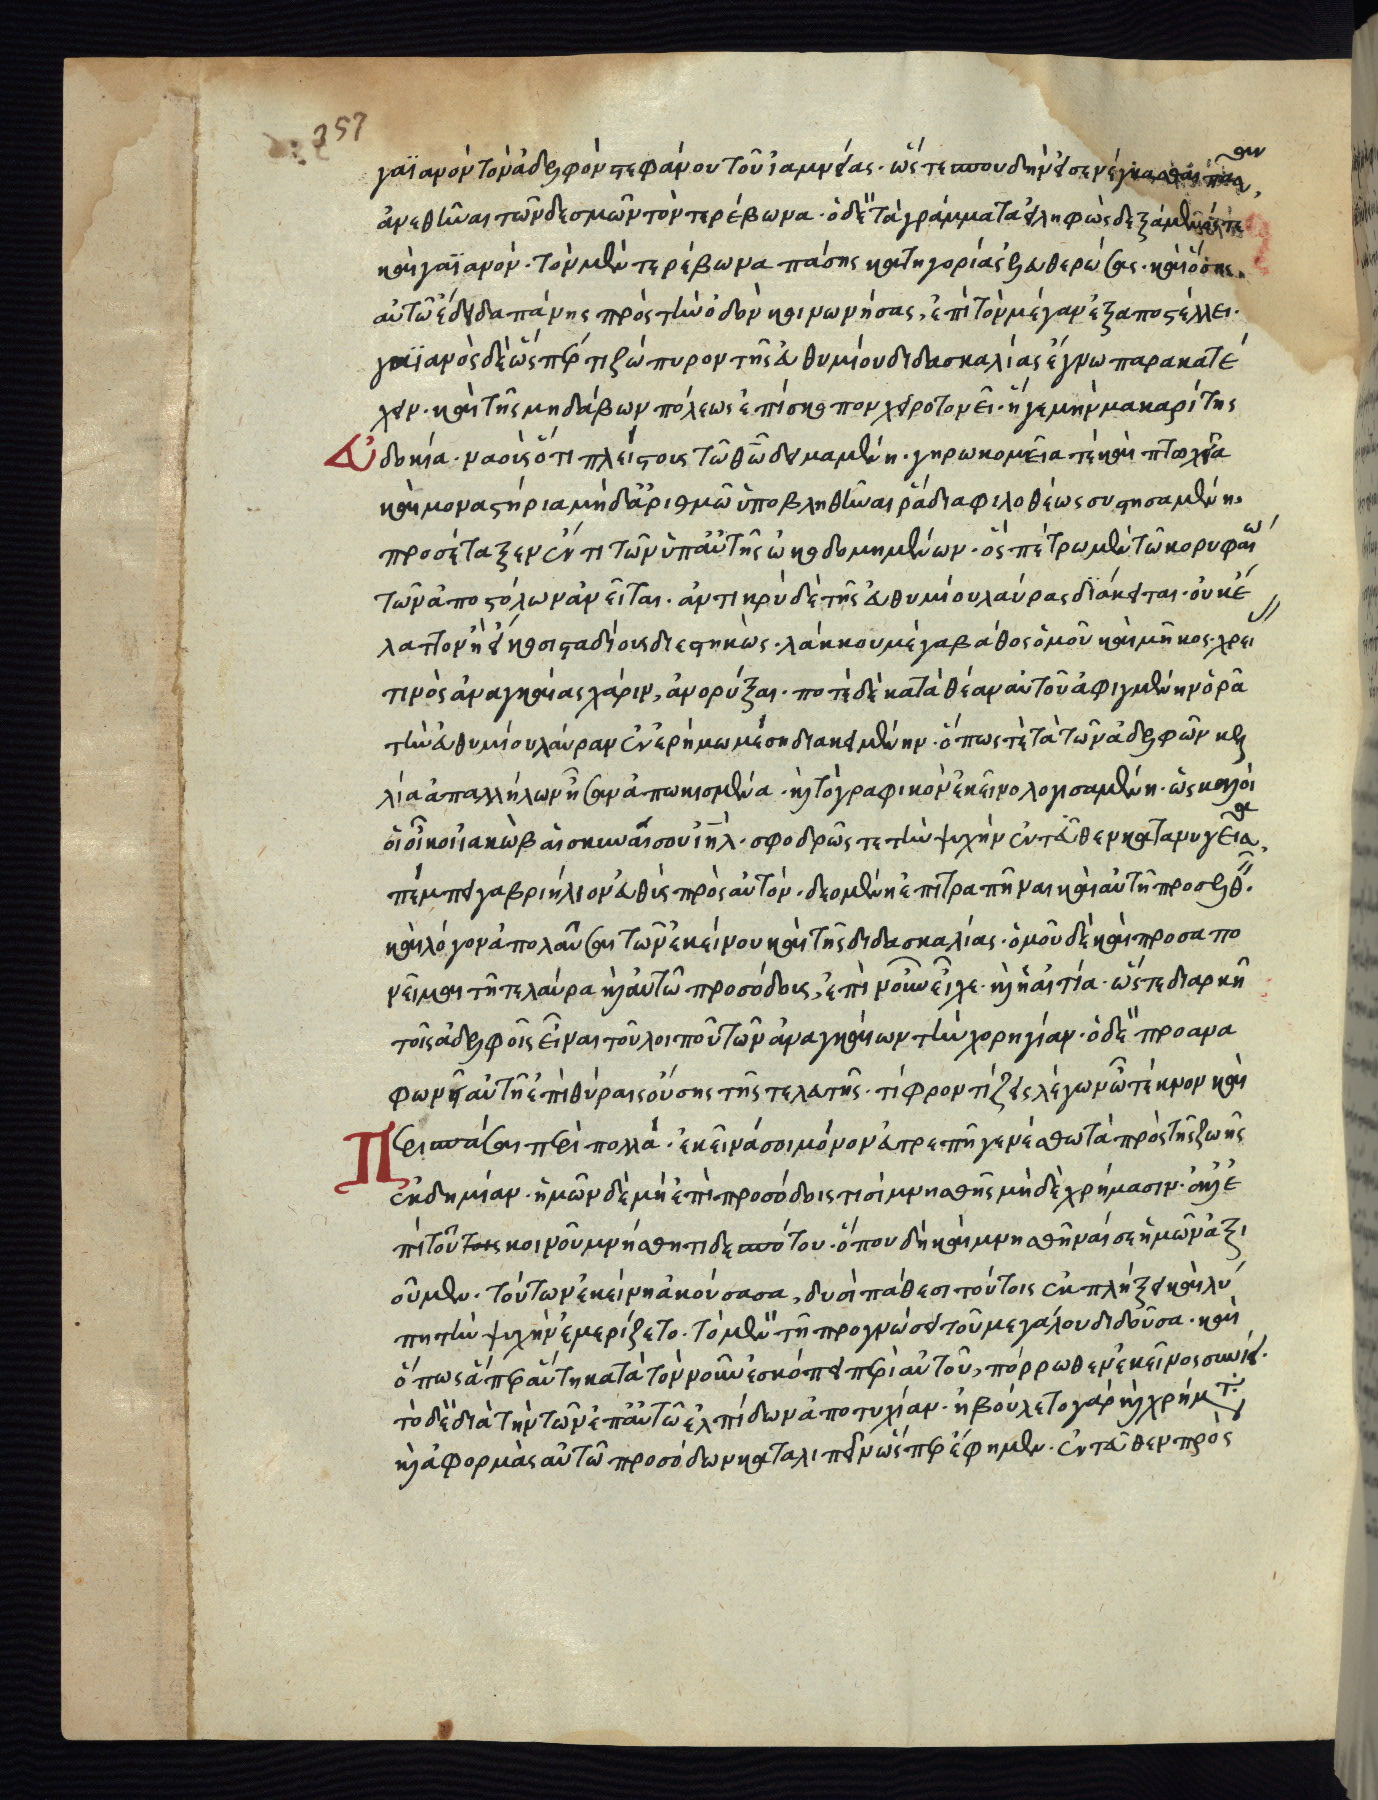 257
γαϊανὸν τὸν ἀδελφὸν στεφάνου τοῦ ἰαμνείας· ὥστε σπουδὴν εἰσενέγκασθαι
ἀνεθῆναι τῶν δεσμῶν τὸν τερέβωνα· ὁ δὲ τὰ γράμματα εἰληφὼς δεξάμενός τε
καὶ γαϊανόν· τὸν μὲν τερέβωνα πάσης κατηγορίας ἐλευθερώσας· καὶ ὅσης
αὐτῷ ἔδει δαπάνης πρὸς τὴν ὁδὸν κοινωνήσας, ἐπὶ τὸν μέγαν ἐξαποστέλλει·
γαϊανὸς δὲ ὥσπερ τι ζώπυρον τῆς εὐθυμίου διδασκαλίας ἔγνω παρακατέ
χειν· καὶ τῆς μηδάβων πόλεως ἐπίσκοπον χειροτονεῖ· ἥγε μὴν μακαρίτης
Εὐδοκία· ναοὺς ὅτι πλείστους τῷ θῶ δειμαμένη· γηρωκομεῖα τὲ καὶ πτωχεῖα
καὶ μοναστήρια μηδ' ἀριθμῶ ὑποβληθῆναι ῥάδια φιλοθέως συστησαμένη·
προσέταξεν ἕν τι τῶν ὑπ' αὐτῆς ὠκοδομημένων· ὃς πέτρω μὲν τῶ κορυφαίω
τῶν ἀποστόλων ἀνεῖται· ἀντικρὺ δὲ τῆς εὐθυμίου λαύρας διάκειται· οὐκ έ
λαττον ἢ εἴκοσι σταδίους διεστηκώς· λάκκου μέγα βάθος ὁμοῦ καὶ μῆκος· χρεί
τινὸς ἀναγκαίας χάριν, ἀνορύξαι· ποτὲ δὲ κατὰ θέαν αὐτοῦ ἀφιγμένην ὁρᾶ
τὴν εὐθυμίου λαύραν ἐν ἐρήμω μέση διακειμένην· ὅπως τὲ τὰ τῶν ἀδελφῶν κελ
λία ἀπαλλήλων ἦσαν ἀπωκισμένα· καὶ τὸ γραφικὸν ἐκεῖνο λογισαμένη· ὡς καλοὶ
οἱ οἶκοι ἰακὼβ αἱ σκηναί σου ἰηλ· σφοδρῶς τε τὴν ψυχὴν ἐντεῦθεν κατανυγεῖσα,
πέμπει γαβριήλιον εὐθὺς πρὸς αὐτόν· δεομένη ἐπιτραπῆναι καὶ αὐτῆ προσελθεῖν·
καὶ λόγον ἀπολαῦσαι τῶν ἐκείνου καὶ τῆς διδασκαλίας· ὁμοῦ δὲ καὶ προσαπο
νεῖμαι τῆ τε λαύρα καὶ αὐτῶ προσόδους, ἐπὶ νοῦν εἶχε· καὶ ἡ αἰτία· ὥστε διαρκῆ
τοῖς ἀδελφοῖς εἶναι τοῦ λοιποῦ τῶν ἀναγκαίων τὴν χορηγίαν· ὁ δὲ προανα
φωνεῖ αὐτῆ ἐπὶ θύραις οὔσης τῆς τελευτῆς· τί φροντίζεις λέγων ὦ τέκνον καὶ
Περισπᾶσαι περὶ πολλά· ἐκεῖνά σοι μόνον εὐτρεπῆ γενέσθω τὰ πρὸς τῆς ζωῆς
ἐκδημίαν· ἡμῶν δὲ μὴ ἐπὶ προσόδοις τισὶ μνησθῆς μὴ δὲ χρήμασιν· ἀλλ' ἐ
πὶ τοῦ κοινοῦ μνήσθητι δεσπότου· ὅπου δὴ καὶ μνησθῆναί σε ἡμῶν ἀξι
οῦμεν· τούτων ἐκείνη ἀκούσασα, δυσὶ πάθεσι τούτοις ἐκπλήξει καὶ λύ
πη τὴν ψυχὴν ἐμερίζετο· τὸ μὲν τῆ προγνώσει τοῦ μεγάλου διδοῦσα· καὶ
ὅπως ἅπερ αὕτη κατὰ τὸν νοῦν ἐσκόπει περὶ αὐτοῦ, πόρρωθεν ἐκεῖνος συνίει·
τὸ δὲ διὰ τὴν τῶν ἐπ' αὐτῶ ἐλπίδων ἀποτυχίαν· ἠβούλετο γὰρ καὶ χρήματα
καὶ ἀφορμὰς αὐτῶ προσόδων καταλιπεῖν ὥσπερ ἔφημεν· ἐντεῦθεν πρὸς